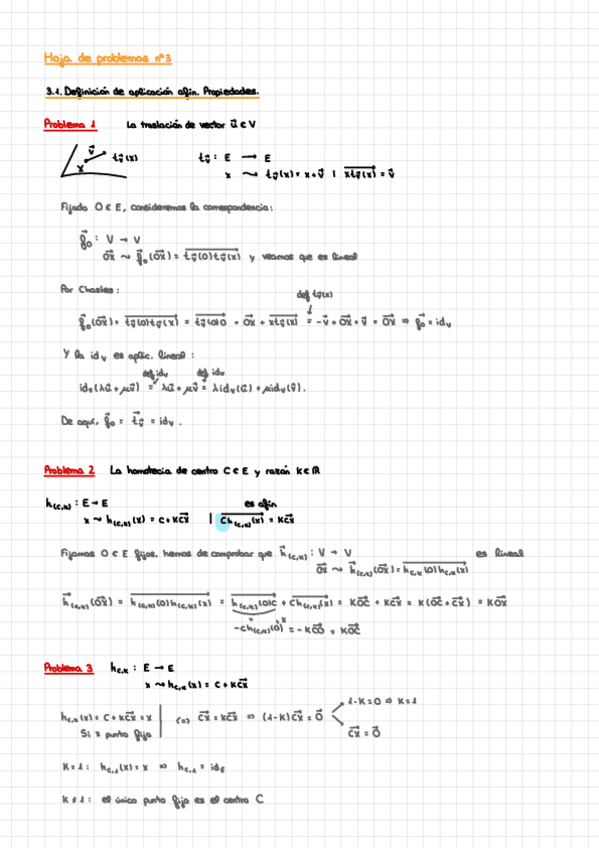 Hoja de problemas nº3
3.1. Definición de aplicación afín. Propiedades.
Problema 1 La traslación de vector u⃗ ∈ V
v⃗ t_v⃗(x) t_v⃗ : E → E
x x ⤳ t_v⃗(x) = x + v⃗ | xt_v⃗(x)⃗ = v⃗
Fijado O ∈ E, consideremos la correspondencia:
g⃗₀ : V → V
OX⃗ ⤳ g⃗₀(OX⃗) = t_v⃗(O)t_v⃗(x)⃗ y veamos que es lineal
Por Chasles:
def t_v⃗(x)
g⃗₀(OX⃗) = t_v⃗(O)t_v⃗(x)⃗ = t_v⃗(O)O⃗ + OX⃗ + xt_v⃗(x)⃗ = -v⃗ + OX⃗ + v⃗ = OX⃗ ⇒ g⃗₀ = id_v
Y la id_v es aplic. lineal :
def id_v def id_v
id_v(λu⃗ + μv⃗) = λu⃗ + μv⃗ = λid_v(u⃗) + μid_v(v⃗).
De aquí, g⃗₀ = t⃗_v⃗ = id_v .
Problema 2 La homotecia de centro C ∈ E y razón K ∈ ℝ
h_(C,K) : E → E es afín
x ⤳ h_(C,K)(x) = C + KCX⃗ | Ch_(C,K)(x)⃗ = KCX⃗
Fijamos O ∈ E fijos, hemos de comprobar que h⃗_(C,K) : V → V es lineal
OX⃗ ⤳ h⃗_(C,K)(OX⃗) = h_C,K(O)h_C,K(x)⃗
h⃗_(C,K)(OX⃗) = h_(C,K)(O)h_(C,K)(x)⃗ = h_(C,K)(O)C⃗ + Ch_(C,K)(x)⃗ = KOC⃗ + KCX⃗ = K(OC⃗ + CX⃗) = KOX⃗
-Ch_(C,K)(O)⃗ = -KCO⃗ = KOC⃗
Problema 3 h_C,K : E → E
x ⤳ h_C,K(x) = C + KCX⃗
1-K=0 ⇒ K=1
h_C,K(x) = C + KCX⃗ = x | (=) CX⃗ = KCX⃗ ⇒ (1-K)CX⃗ = 0⃗
Si x punto fijo CX⃗ = 0⃗
K=1 : h_C,1(x) = x ⇒ h_C,1 = id_E
K≠1 : el único punto fijo es el centro C